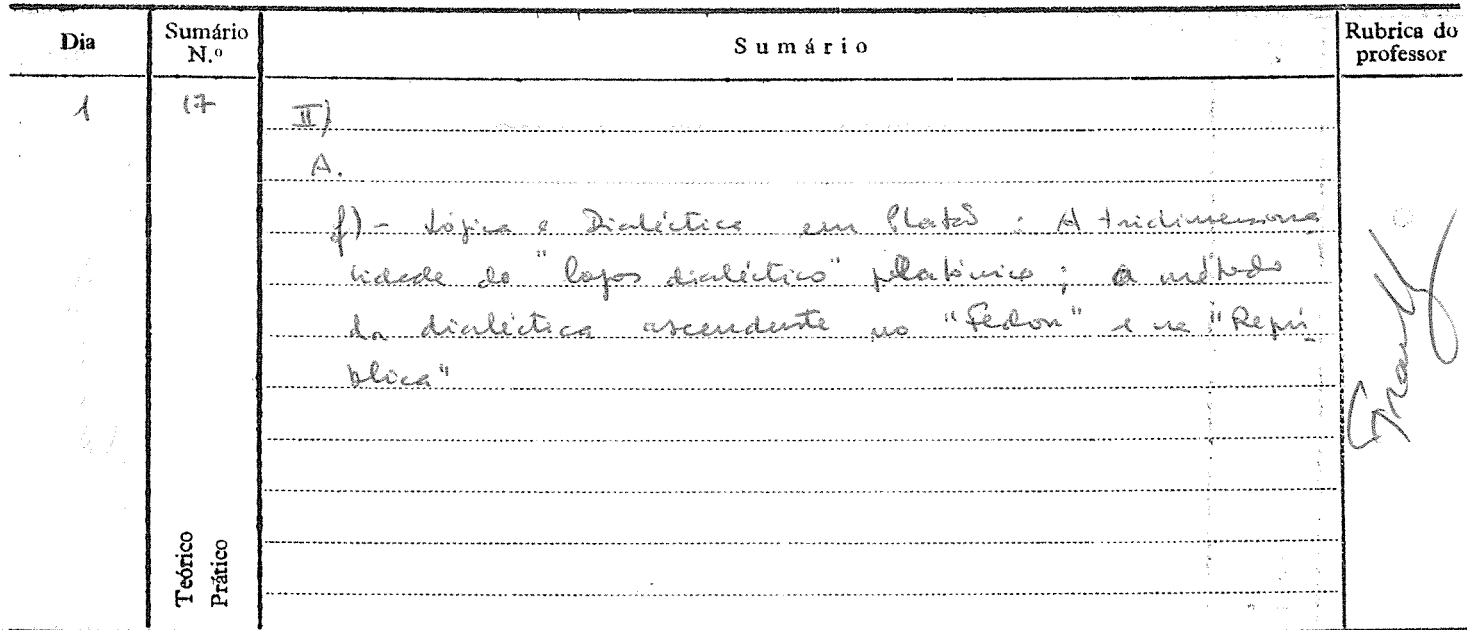 Dia Sumário N.º Sumário Rubrica do professor
1 17 II)
A.
f) - Lógica e Dialéctica em Platão : A tridimensiona
lidade do "logos dialéctico" platónico ; o método
da dialéctica ascendente no "Fedon" e na "Repú-
blica"
Teórico
Prático